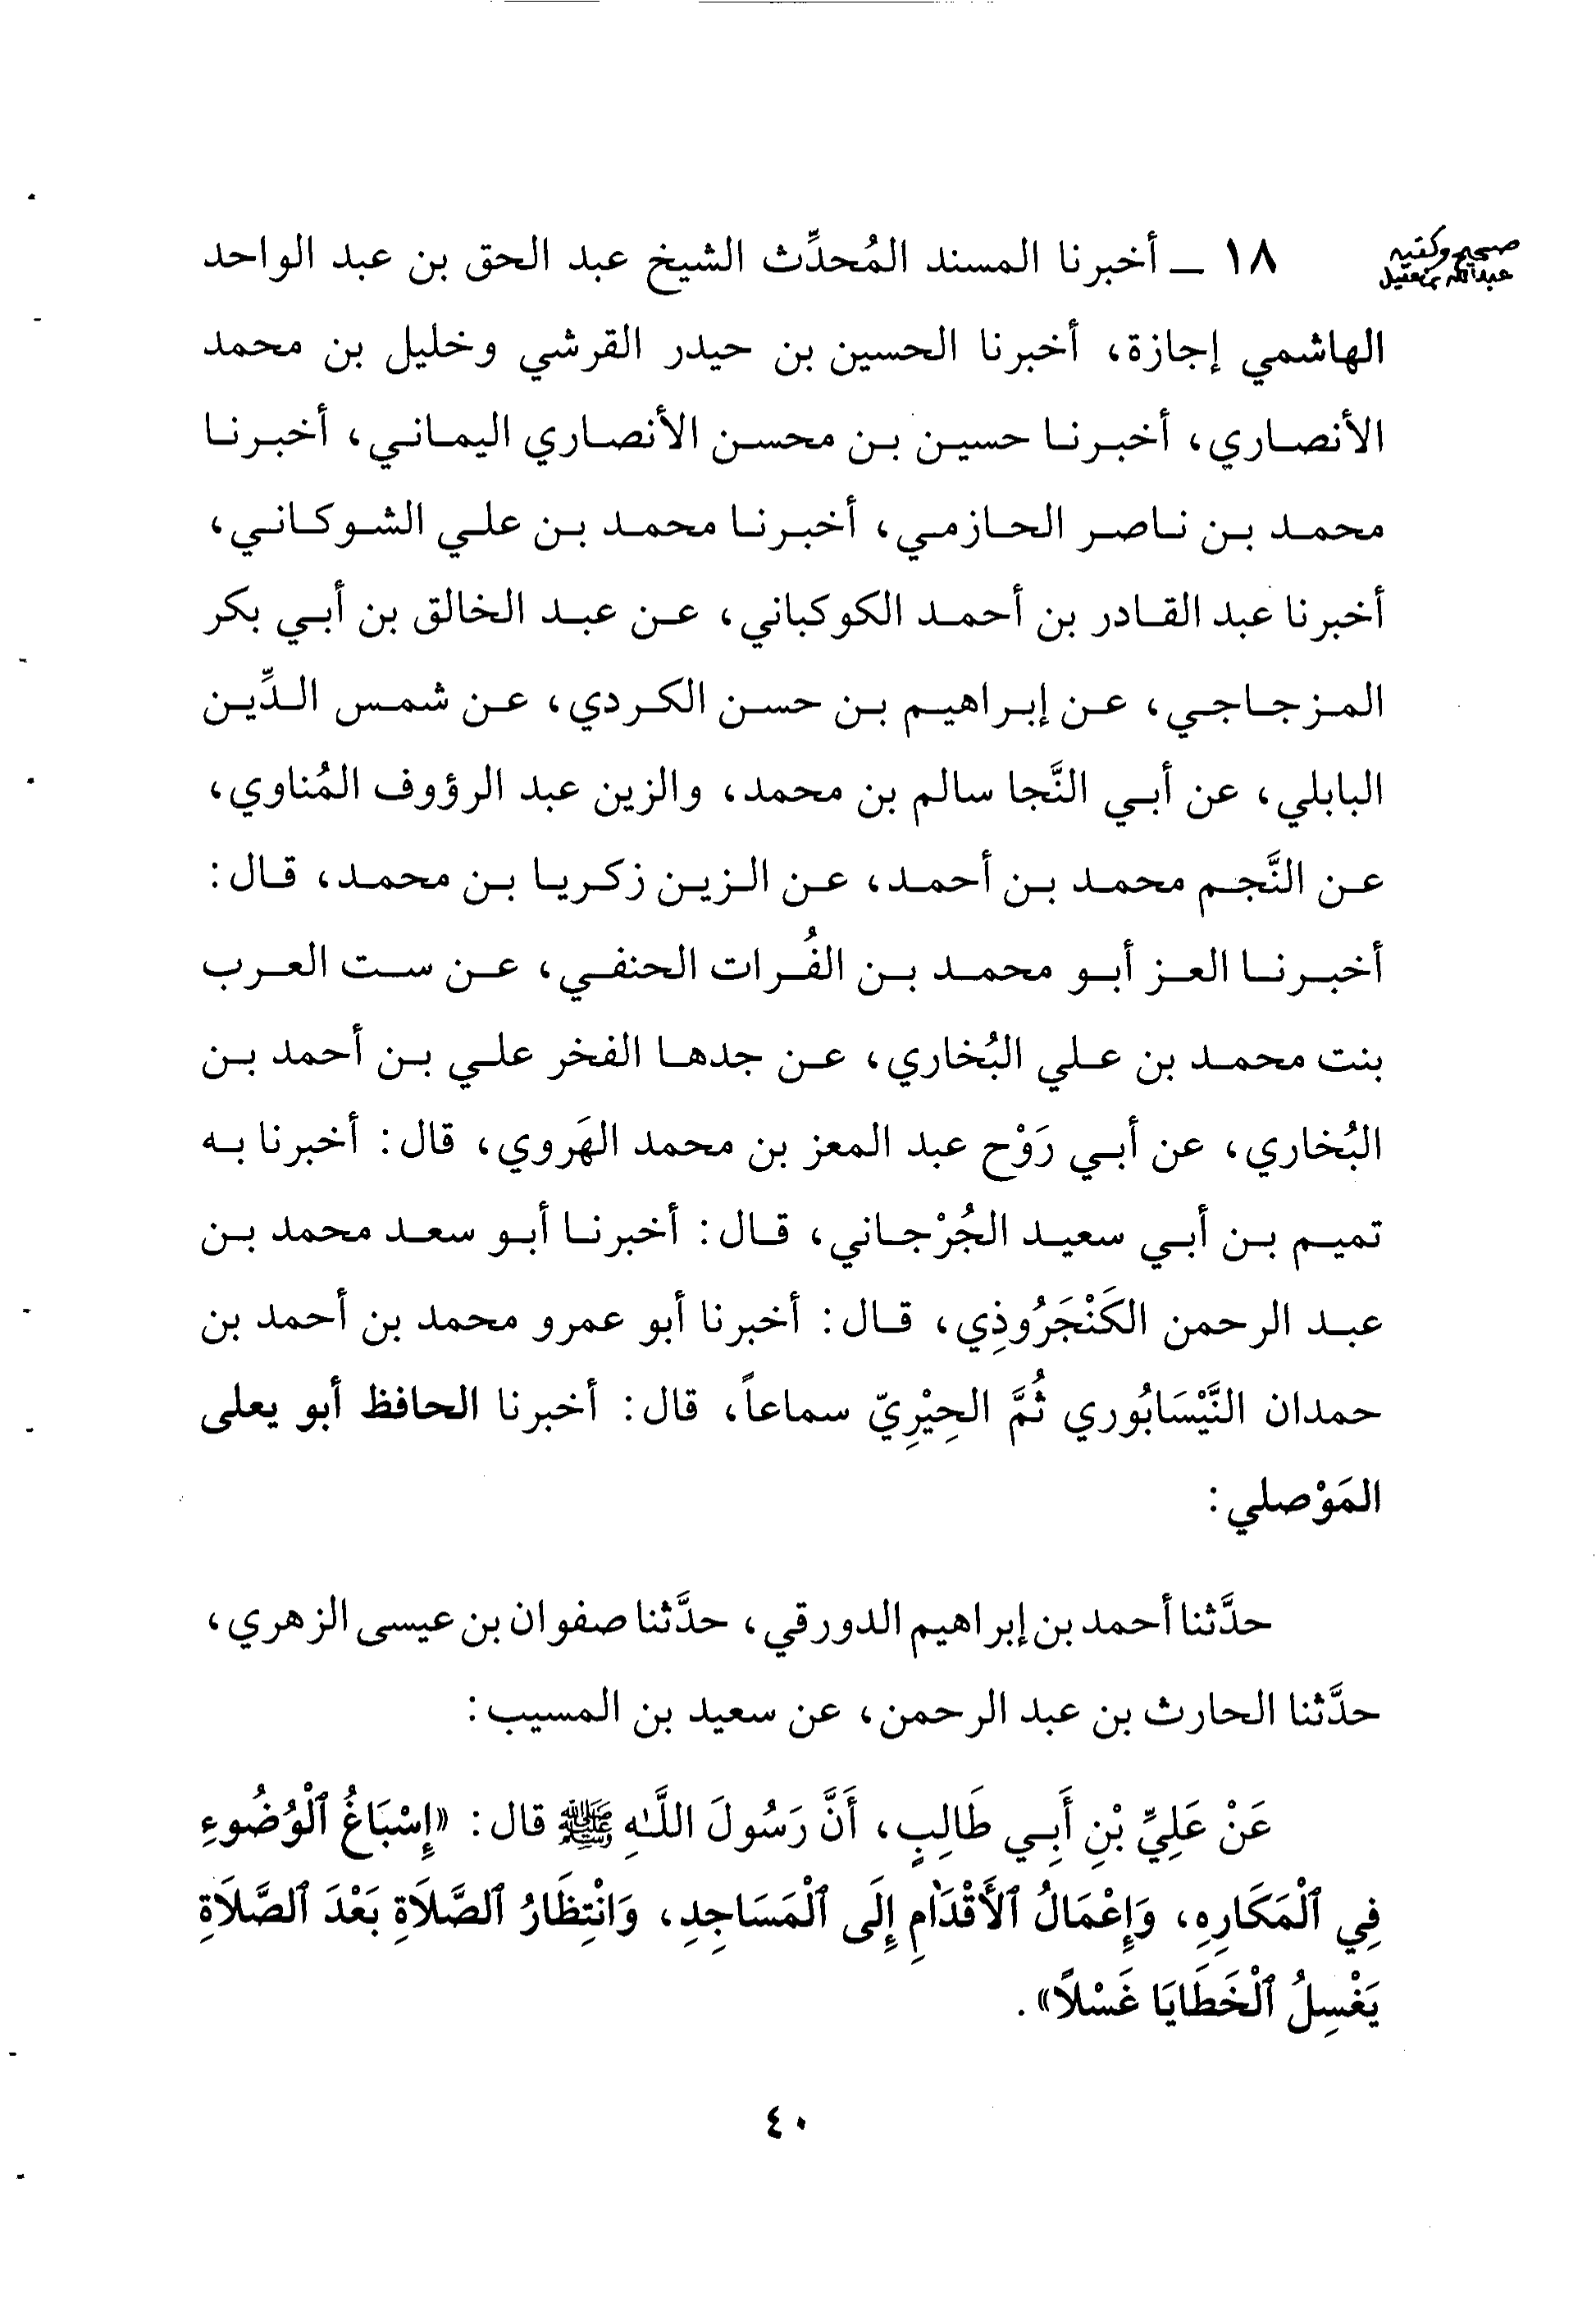 صحيح وكتبه
عبدالله بن عقيل
١٨ ــ أخبرنا المسند المُحدِّث الشيخ عبد الحق بن عبد الواحد
الهاشمي إجازة، أخبرنا الحسين بن حيدر القرشي وخليل بن محمد
الأنصاري، أخبرنا حسين بن محسن الأنصاري اليماني، أخبرنا
محمد بن ناصر الحازمي، أخبرنا محمد بن علي الشوكاني،
أخبرنا عبد القادر بن أحمد الكوكباني، عن عبد الخالق بن أبي بكر
المزجاجي، عن إبراهيم بن حسن الكردي، عن شمس الدِّين
البابلي، عن أبي النَّجا سالم بن محمد، والزين عبد الرؤوف المُناوي،
عن النَّجم محمد بن أحمد، عن الزين زكريا بن محمد، قال:
أخبرنا العز أبو محمد بن الفُرات الحنفي، عن ست العرب
بنت محمد بن علي البُخاري، عن جدها الفخر علي بن أحمد بن
البُخاري، عن أبي رَوْح عبد المعز بن محمد الهَروي، قال: أخبرنا به
تميم بن أبي سعيد الجُرْجاني، قال: أخبرنا أبو سعد محمد بن
عبد الرحمن الكَنْجَرُوذِي، قال: أخبرنا أبو عمرو محمد بن أحمد بن
حمدان النَّيْسَابُوري ثُمَّ الحِيْرِيّ سماعاً، قال: أخبرنا الحافظ أبو يعلى
المَوْصلي:
حدَّثنا أحمد بن إبراهيم الدورقي، حدَّثنا صفوان بن عيسى الزهري،
حدَّثنا الحارث بن عبد الرحمن، عن سعيد بن المسيب:
عَنْ عَلِيِّ بْنِ أَبِي طَالِبٍ، أَنَّ رَسُولَ اللَّـٰهِ ﷺ قال: «إِسْبَاغُ ٱلْوُضُوءِ
فِي ٱلْمَكَارِهِ، وَإِعْمَالُ ٱلأَقْدَامِ إِلَى ٱلْمَسَاجِدِ، وَانْتِظَارُ ٱلصَّلَاةِ بَعْدَ ٱلصَّلَاةِ
يَغْسِلُ ٱلْخَطَايَا غَسْلاً».
٤٠